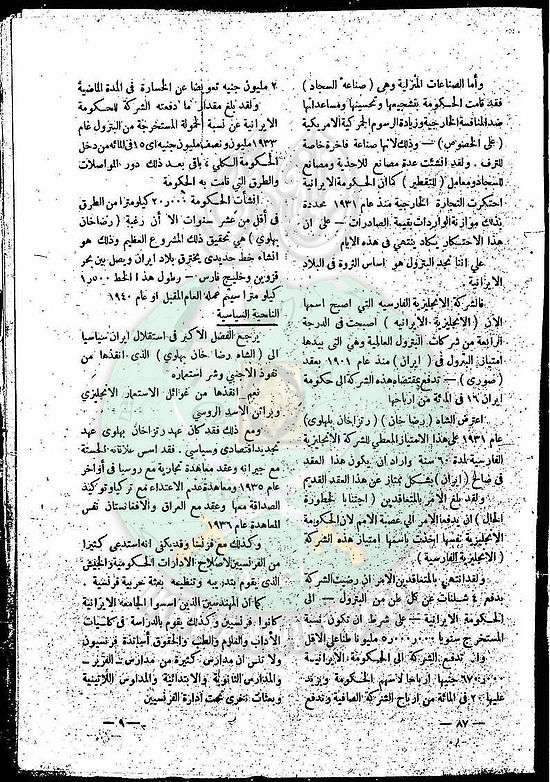 وأما الصناعات المنزلية وهي ( صناعة السجاد )
فقد قامت الحكومة بتشجيعها وتحسينها ومساعدتها
ضد المنافسة الخارجية وزيادة الرسوم الجمركية الامريكية
( على الخصوص ) — وذلك لانها صناعة فاخرة خاصة
للترف . ولقد انشئت عدة مصانع للاحذية ومصانع
للسجاد ومعامل ( للتقطير ) كما ان الحكومة الايرانية
احتكرت التجارة الخارجية منذ عام ١٩٣١ محددة
بذلك موازنة الواردات بقيمة الصادرات — على ان
هذا الاحتكار يكاد ينتهي في هذه الايام
علي اننا نجد البترول هو اساس الثروة في البلاد
الايرانية
فالشركة الانجليزية الفارسيه التي اصبح اسمها
الآن ( الانجليزية الايرانيه ) اصبحت في الدرجة
الرابعة من شركات البترول العالمية وهي التي بيدها
امتياز البترول في ( ايران ) منذ عام ١٩٠١ بعقد
( صوري ) — تدفع بمقتضاه هذه الشركة الى حكومة
ايران ١٦ في المائة من ارباحها
اعترض الشاه ( رضا خان ) ( رتزاخان بلهاوى )
عام ١٩٣١ على هذا الامتياز المعطي للشركة الانجليزية
الفارسية لمدة ٦٠ سنة واراد ان يكون هذا العقد
في صالح ( ايران ) بشكل يمتاز عن هذا العقد القديم
ولقد بلغ الامر بالمتعاقدين ( اجتنابا لخطورة
الحال ) ان يدفعا الامر الى عصبة الامم لان الحكومة
الانجليزية نفسها اخذت باسمها امتياز هذه الشركة
( الانجليزية الفارسية )
ولقد انتهى بالمتعاقدين الامر ان رضيت الشركة
بدفع ٤ شلنات عن كل طن من البترول — الى
الحكومة الايرانية — على شرط ان تكون نسبة
المستخرج سنويا ٥٫٠٠٠٫٠٠٠ مليونا طنا على الاقل
وان تدفع الشركة الى الحكومة الايرانيـة
٦٧٠٫٠٠٠ جنيها ارباحا لاسهم الحكومة ويزيد
عليها ٢٠ في المائة من ارباح الشركة الصافية وتدفع
— ٨٧ —
٢ مليون جنيه تعويضا عن الخسارة في المدة الماضية
ولقد بلغ مقدار ما دفعته الشركة للحكومة
الايرانية عن نسبة الحمولة المستخرجة من البترول عام
١٩٣٣ مليون ونصف مليون جنيه اى ١٥ في المائه من دخل
الحكومة الكلي ، باقى بعد ذلك دور المواصلات
والطرق التي قامت به الحكومة
انشأت الحكومة ٢٠٫٠٠٠ كيلومترا من الطرق
في أقل من عشر سنوات الا أن رغبة ( رضا خان
بهلوى ) هي تحقيق ذلك المشروع العظيم وذلك هو
انشاء خط حديدى يخترق بلاد ايران ويصل بين بحر
قزوين وخليج فارس — وطول هذا الخط ١٫٥٠٠
كيلو مترا سيتم عمله العام المقبل او عام ١٩٤٠
الناحية السياسية
يرجع الفضل الاكبر في استقلال ايران سياسيا
الى ( الشاه رضا خان بهلوى ) الذى انقذها من
نفوذ الاجنبي وشر استعماره
نعم انقذها من غوائل الاستعمار الانجليزي
وبراثن الاسد الروسي
ومع ذلك فقد كان عهد رتزاخان بهلوى عهد
تجديد اقتصادى وسياسى . فقد اسس علاقاته الحسنة
مع جيرانه وعقد معاهدة تجارية مع روسيا فى أواخر
عام ١٩٣٥ ومعاهدة عدم الاعتداء مع تركيا وتوكيد
الصداقة معها وعقد مع العراق والافغانستان نفس
المعاهدة عام ١٩٣٦
وكذلك مع فرنسا وقد يكفى انه استدعى كثيرا
من الفرنسيين لاصلاح الادارات الحكومية والجيش
الذى يقوم بتدريبه وتنظيمه بعثة حربية فرنسية .
كما ان المهندسين الذين اسسوا الجامعة الايرانية
كانوا فرنسيين وكذلك يقوم بالدراسة فى كاليات
الآداب والعلوم والطب والحقوق أساتذة فرنسيون
ولا ننسى ان مدارس كثيرة من مدارس — الفرير —
والمدارس الثانوية والابتدائية والمدارس اللاتينية
وبعثات اخرى تحت ادارة الفرنسيين
— ٩ —